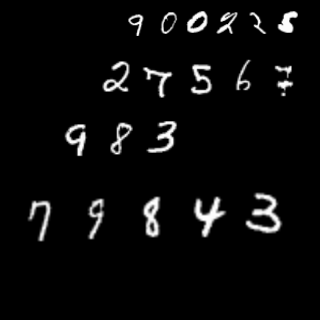 900225
27567
983
79843